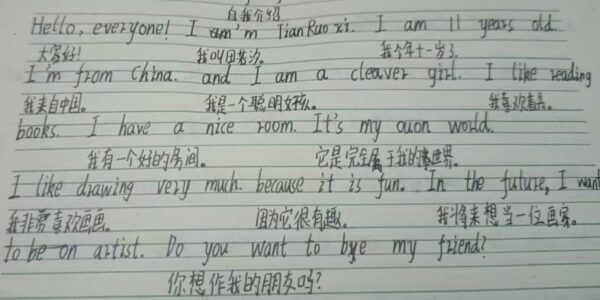 自我介绍
Hello, everyone! I am'm Tian Ruo xi. I am 11 years old.
大家好! 我叫田若汐。 我今年十一岁了.
I'm from China. and I am a cleaver girl. I like reading
我来自中国。 我是一个聪明女孩。 我喜欢看书。
books. I have a nice room. It's my ouon world.
我有一个好的房间。 它是完全属于我的世界。
I like drawing very much. because it is fun. In the future, I want
我非常喜欢画画。 因为它很有趣。 我将来想当一位画家。
to be on artist. Do you want to bye my friend?
你想作我的朋友吗?